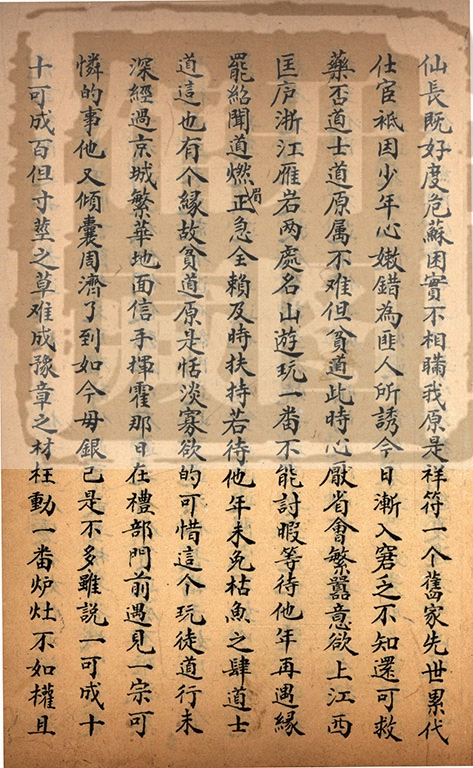 仙長既好度危蘇困實不相瞞我原是祥符一个舊家先世累代
仕宦祇因少年心嫩錯為匪人所誘今日漸入窘乏不知還可救
藥否道士道原属不难但貧道此時心厭省會繁囂意欲上江西
匡庐浙江雁岩两處名山遊玩一畨不能討暇等待他年再遇緣
罷紹聞道燃眉正急全賴及時扶持若待他年未免枯魚之肆道士
道這也有个縁故貧道原是恬淡寡欲的可惜這个玩徒道行未
深經過京城繁華地面信手揮霍那日在禮部門前遇見一宗可
憐的事他又傾囊周濟了到如今毋銀已是不多雖説一可成十
十可成百但寸莖之草难成豫章之材枉動一畨炉灶不如權且